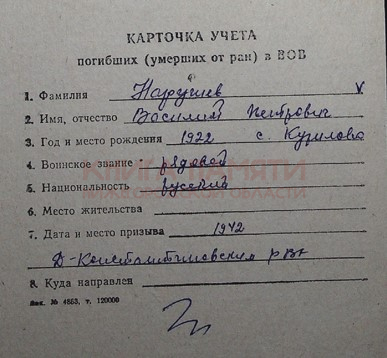 КАРТОЧКА УЧЕТА
погибших (умерших от ран) в ВОВ
1. Фамилия Наручев V
2. Имя, отчество Василий Петрович
3. Год и место рождения 1922 с. Курилово
4. Воинское звание рядовой
КНИГА ПАМЯТИ
НИЖЕГОРОДСКОЙ ОБЛАСТИ
5. Национальность русский
6. Место жительства
7. Дата и место призыва 1942
Д-Константиновским РВК
8. Куда направлен
Зак. № 4853, т. 120000